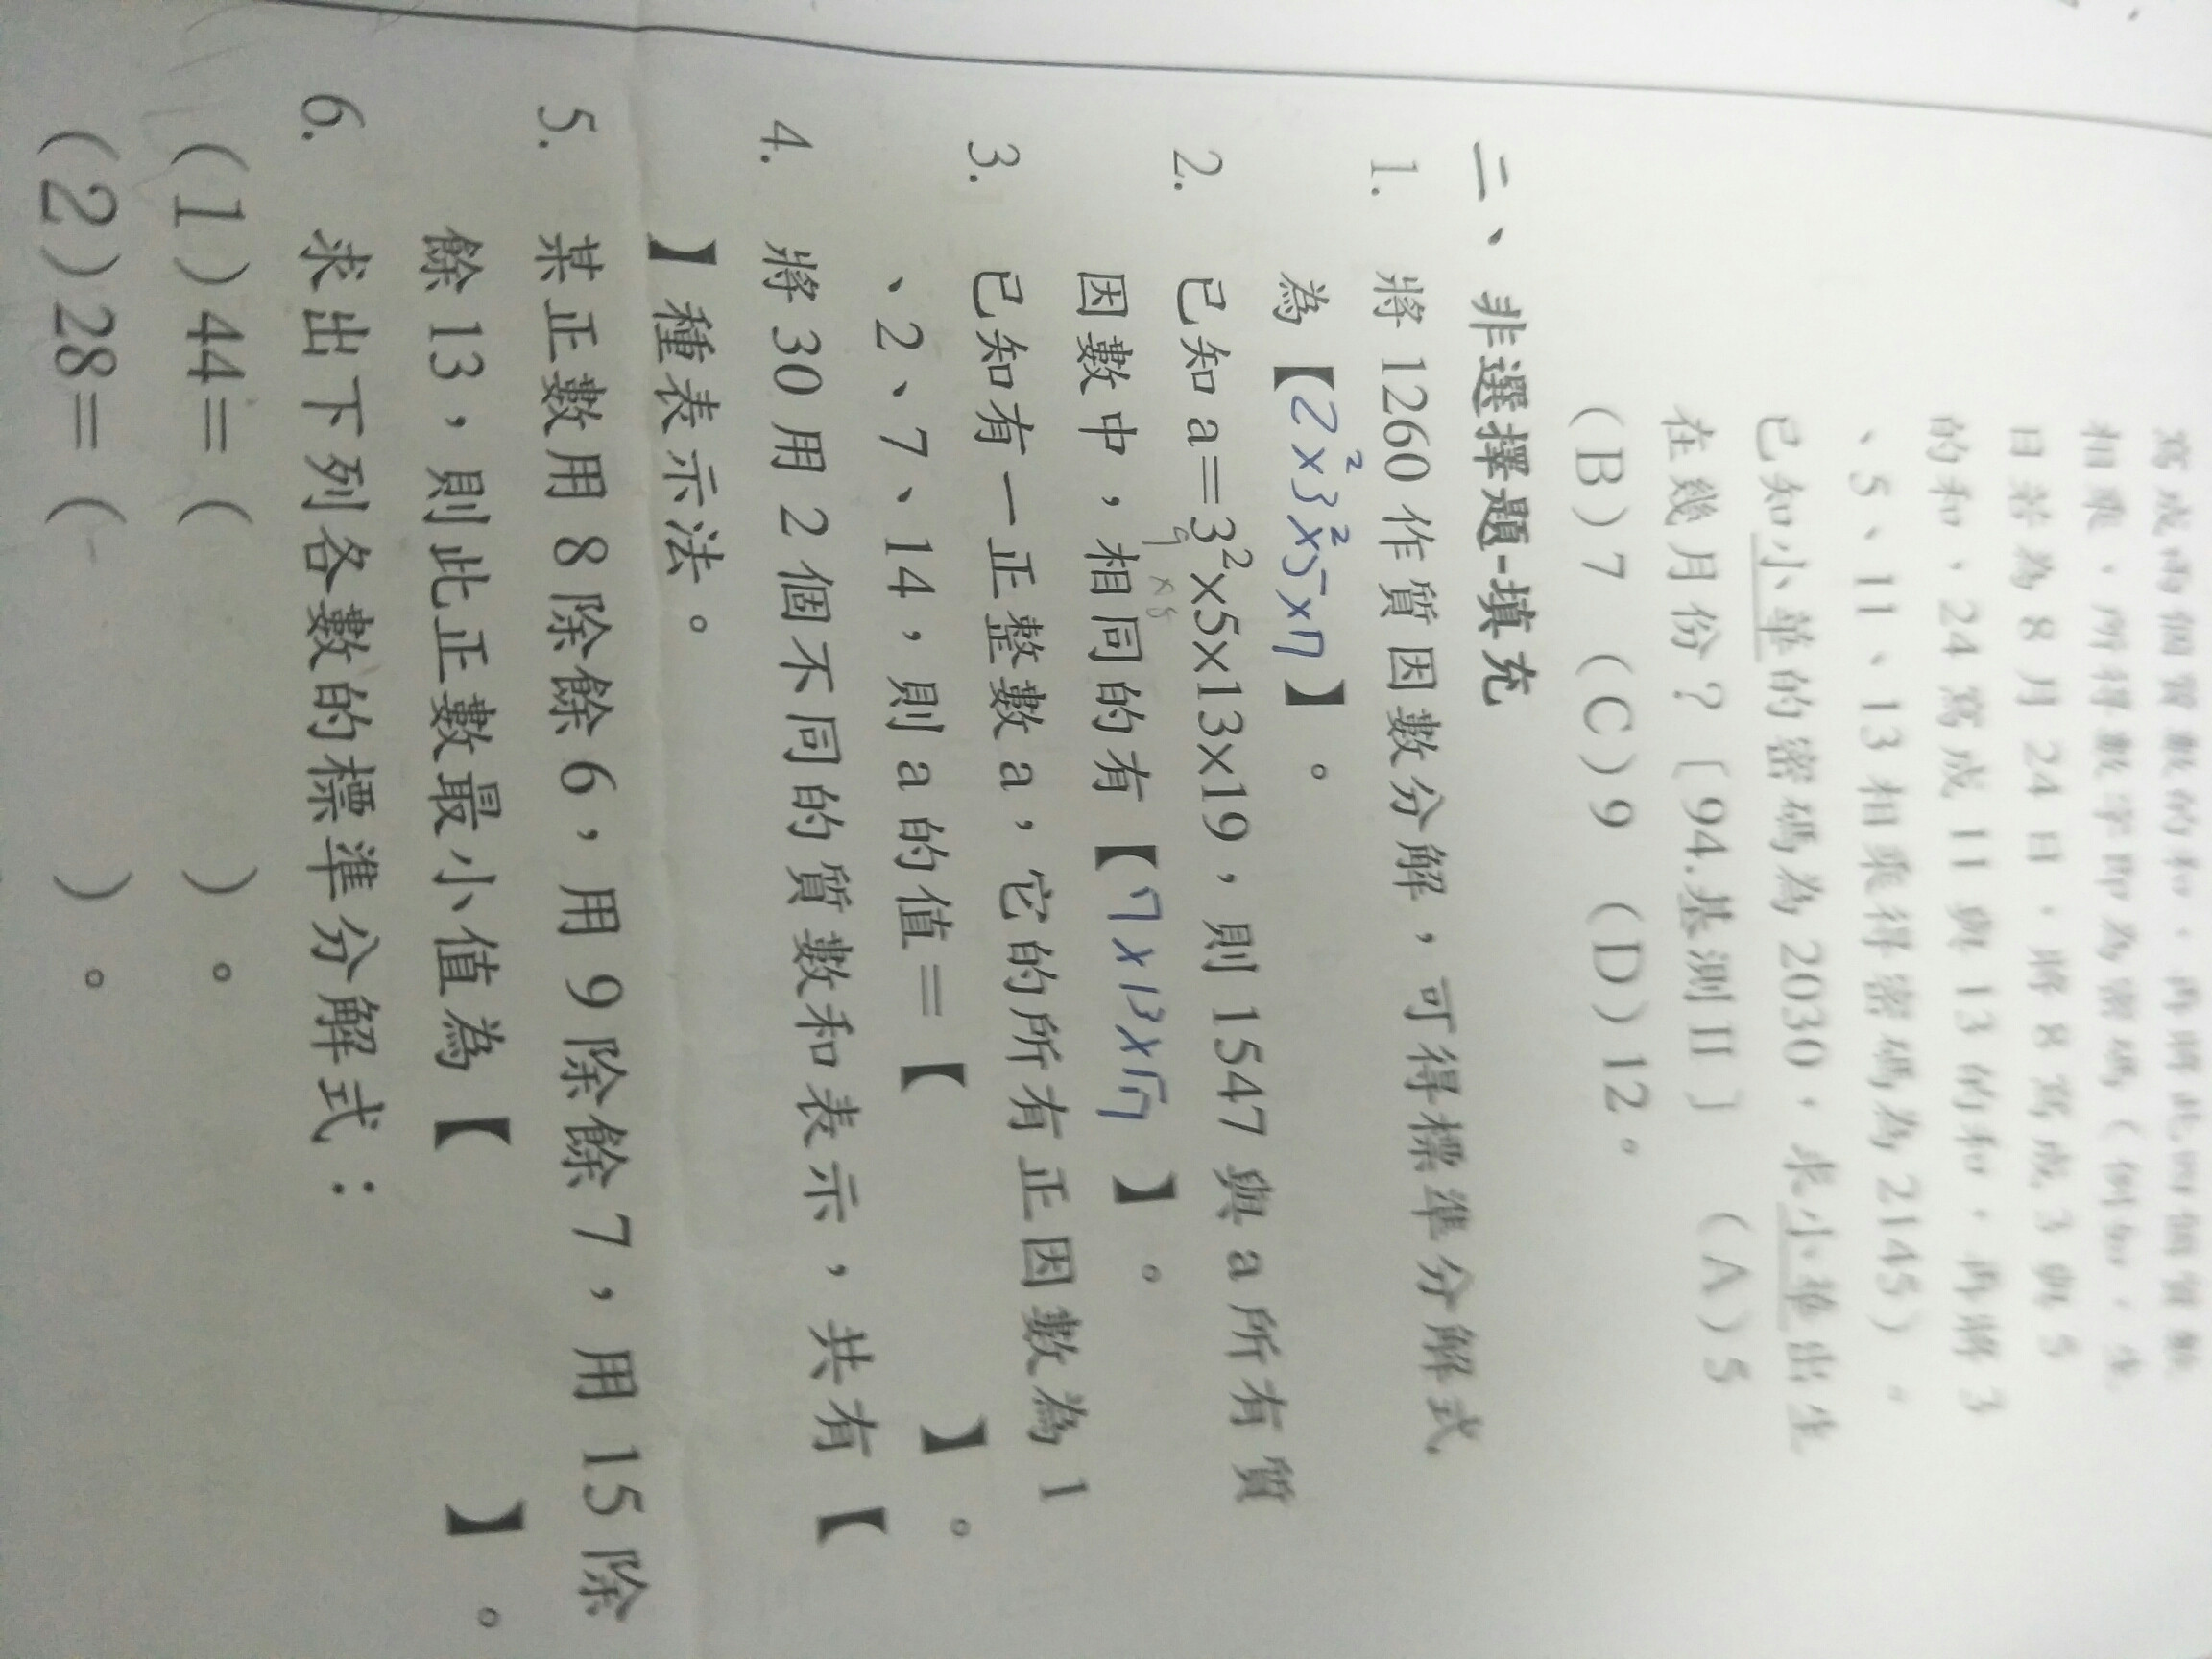 寫成兩個質數的和，再將此四個質數
相乘，所得數字即為密碼（例如，生
日若為8月24日，將8寫成3與5
的和，24寫成11與13的和，再將3
、5、11、13相乘得密碼為2145）。
已知小華的密碼為2030，求小華出生
在幾月份？〔94.基測Ⅱ〕 (A)5
(B)7 (C)9 (D)12。
二、非選擇題-填充
1. 將1260作質因數分解，可得標準分解式
為【2²×3²×5×7】。
2. 已知a=3²×5×13×19，則1547與a所有質
因數中，相同的有【7×13×17】。
3. 已知有一正整數a，它的所有正因數為1
、2、7、14，則a的值=【 】。
4. 將30用2個不同的質數和表示，共有【
】種表示法。
5. 某正數用8除餘6，用9除餘7，用15除
餘13，則此正數最小值為【 】。
6. 求出下列各數的標準分解式：
(1)44=( )。
(2)28=( )。